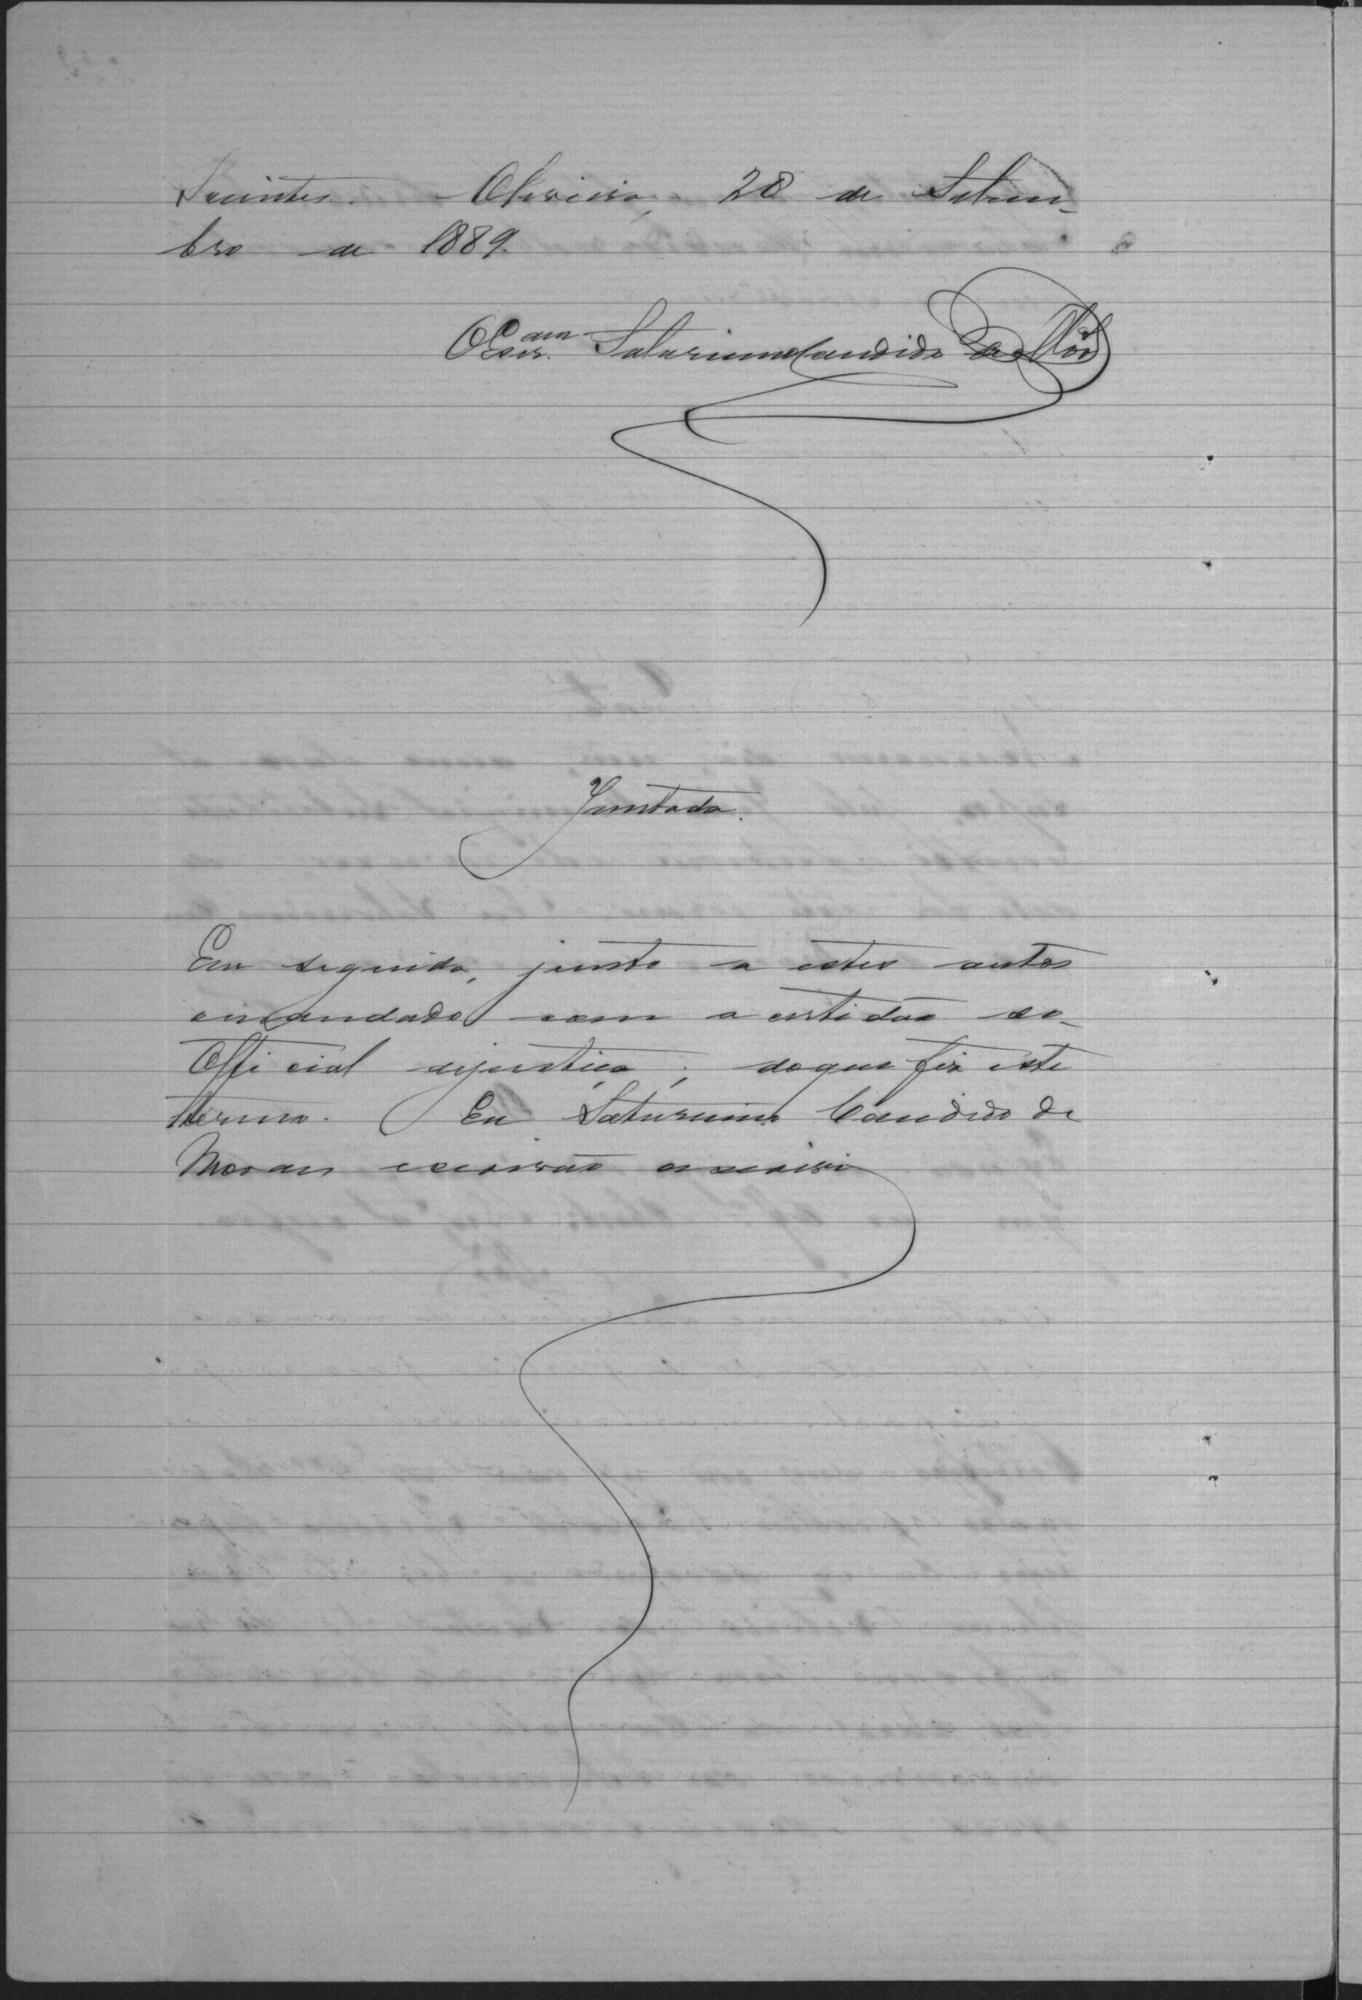 Scientes. Oliveira, 28 de Setem-
bro de 1889.
O Escr.am Saturnino Candido de
Juntada.
Em seguida, junto a estes autos
o mandado com a certidão do
Official dejustiça; doque fiz este
termo. Eu Saturnino Candido de
Moraes escrivão o escrivi